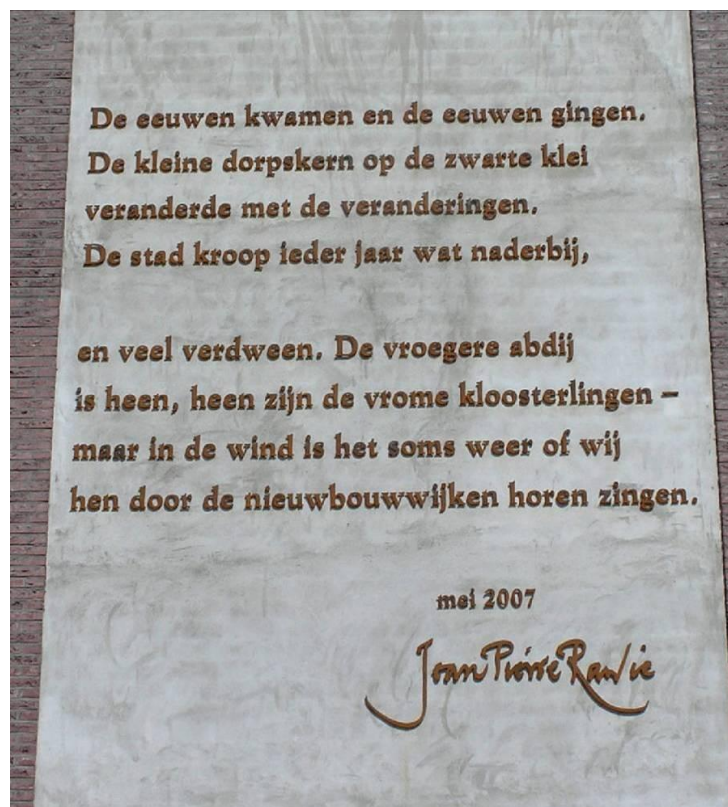 De eeuwen kwamen en de eeuwen gingen.
De kleine dorpskern op de zwarte klei
veranderde met de veranderingen.
De stad kroop ieder jaar wat naderbij,
en veel verdween. De vroegere abdij
is heen, heen zijn de vrome kloosterlingen –
maar in de wind is het soms weer of wij
hen door de nieuwbouwwijken horen zingen.
mei 2007
Jean Pierre Rawie